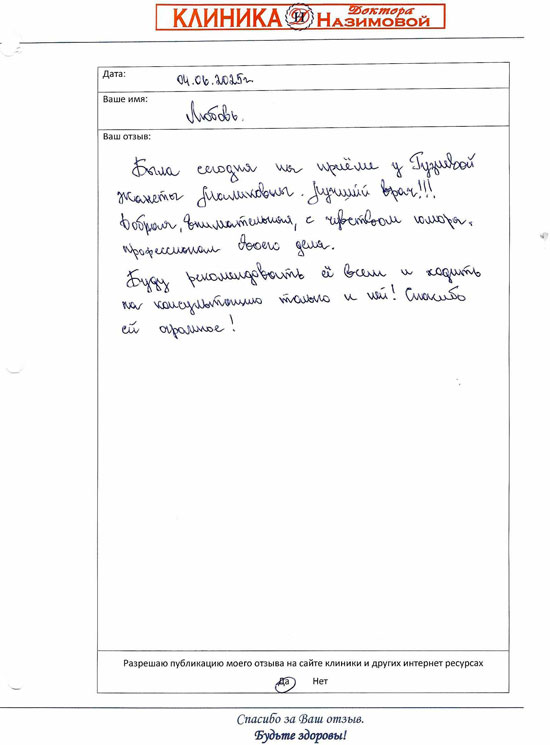 КЛИНИКА Доктора НАЗИМОВОЙ
Дата: 04.06.2025г.
Ваше имя: Любовь.
Ваш отзыв:
Была сегодня на приёме у Гузиевой
Жанеты Маликовны. Лучший врач!!!
Добрая, внимательная, с чувством юмора,
профессионал своего дела.
Буду рекомендовать её всем и ходить
на консультацию только к ней! Спасибо
ей огромное!
Разрешаю публикацию моего отзыва на сайте клиники и других интернет ресурсах
Да Нет
Спасибо за Ваш отзыв.
Будьте здоровы!